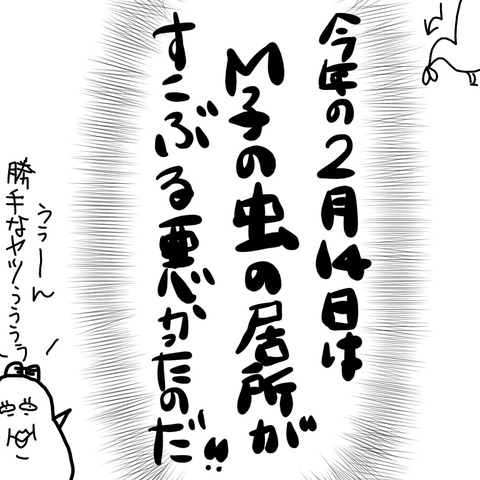 今年の2月14日は
M子の虫の居所が
すこぶる悪かったのだ!!
うぅーん
勝手なヤツぅぅぅぅ